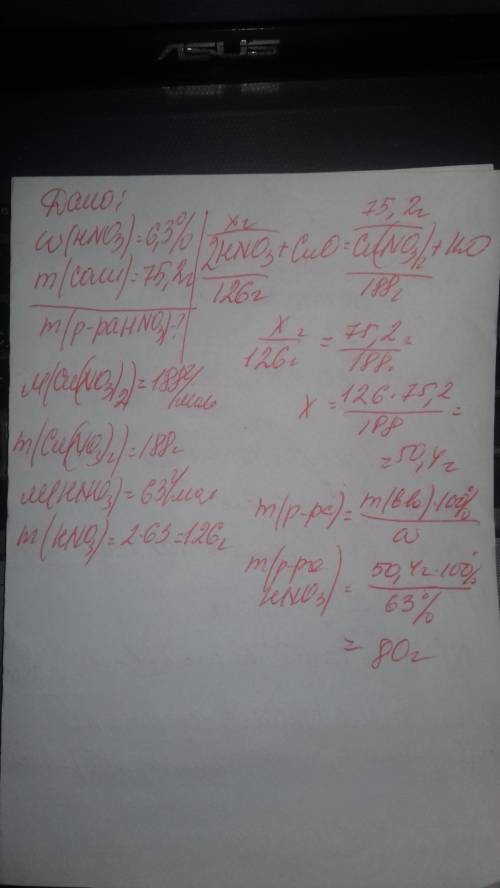 ASUS
Дано:
w(HNO3)=6,3%
m(соли)=75,2г
m(р-раHNO3)-?
M(Cu(NO3)2)=188г/моль
m(Cu(NO3)2)=188г
M(HNO3)=63г/мол
m(HNO3)=2·63=126г
xг 75,2г
2HNO3+CuO=Cu(NO3)2+H2O
126г 188г
xг/126г = 75,2г/188г
x = 126·75,2/188 =
=50,4г
m(р-ра)= m(в-ва)·100%/w
m(р-ра HNO3) = 50,4г·100%/63%
= 80г